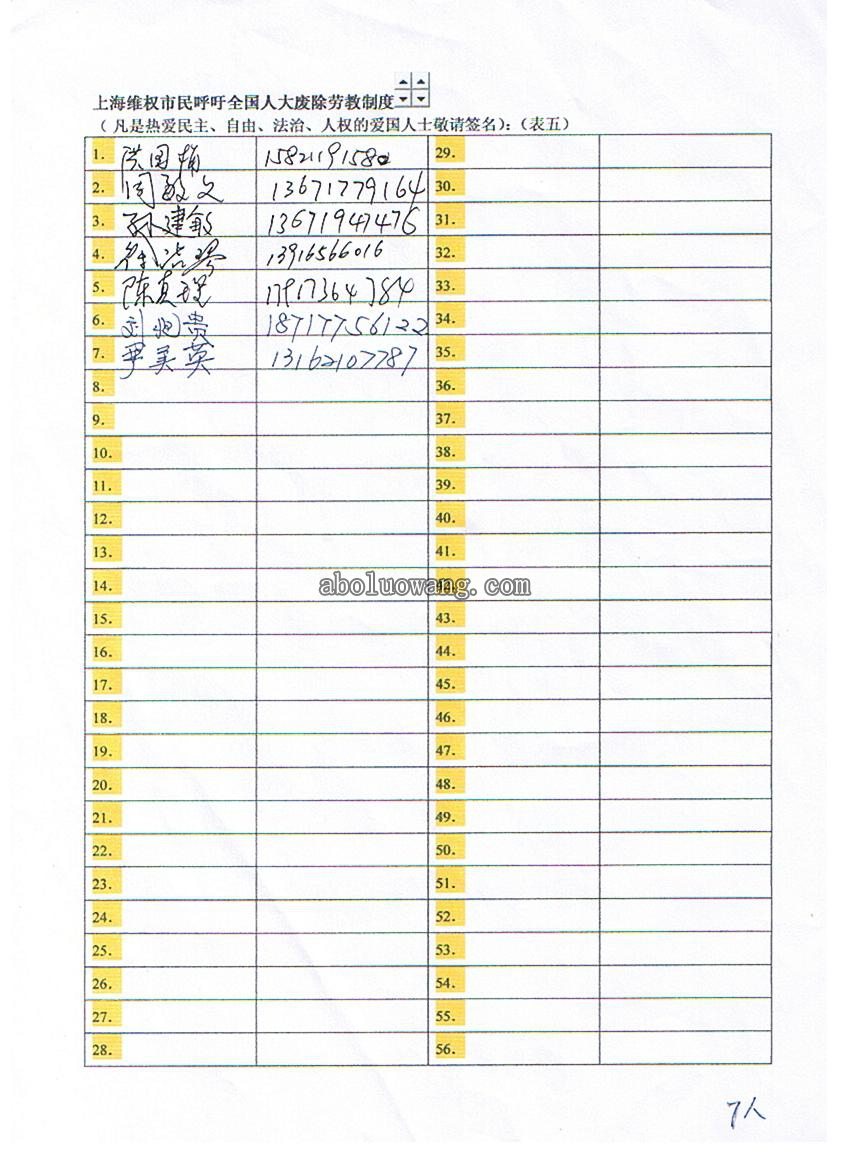 上海维权市民呼吁全国人大废除劳教制度
（ 凡是热爱民主、自由、法治、人权的爱国人士敬请签名）：（表五）
1. 洪国 15821191580 29.
2. 周敏文 13671779164 30.
3. 孙建敏 13671947476 31.
4. 徐 13916566016 32.
5. 陈真理 364784 33.
6. 刘 贵 18717756122 34.
7. 尹美英 13162107787 35.
8. 36.
9. 37.
10. 38.
11. 39.
12. 40.
13. 41.
14.
aboluowang.com
15. 43.
16. 44.
17. 45.
18. 46.
19. 47.
20. 48.
21. 49.
22. 50.
23. 51.
24. 52.
25. 53.
26. 54.
27. 55.
28. 56.
7人